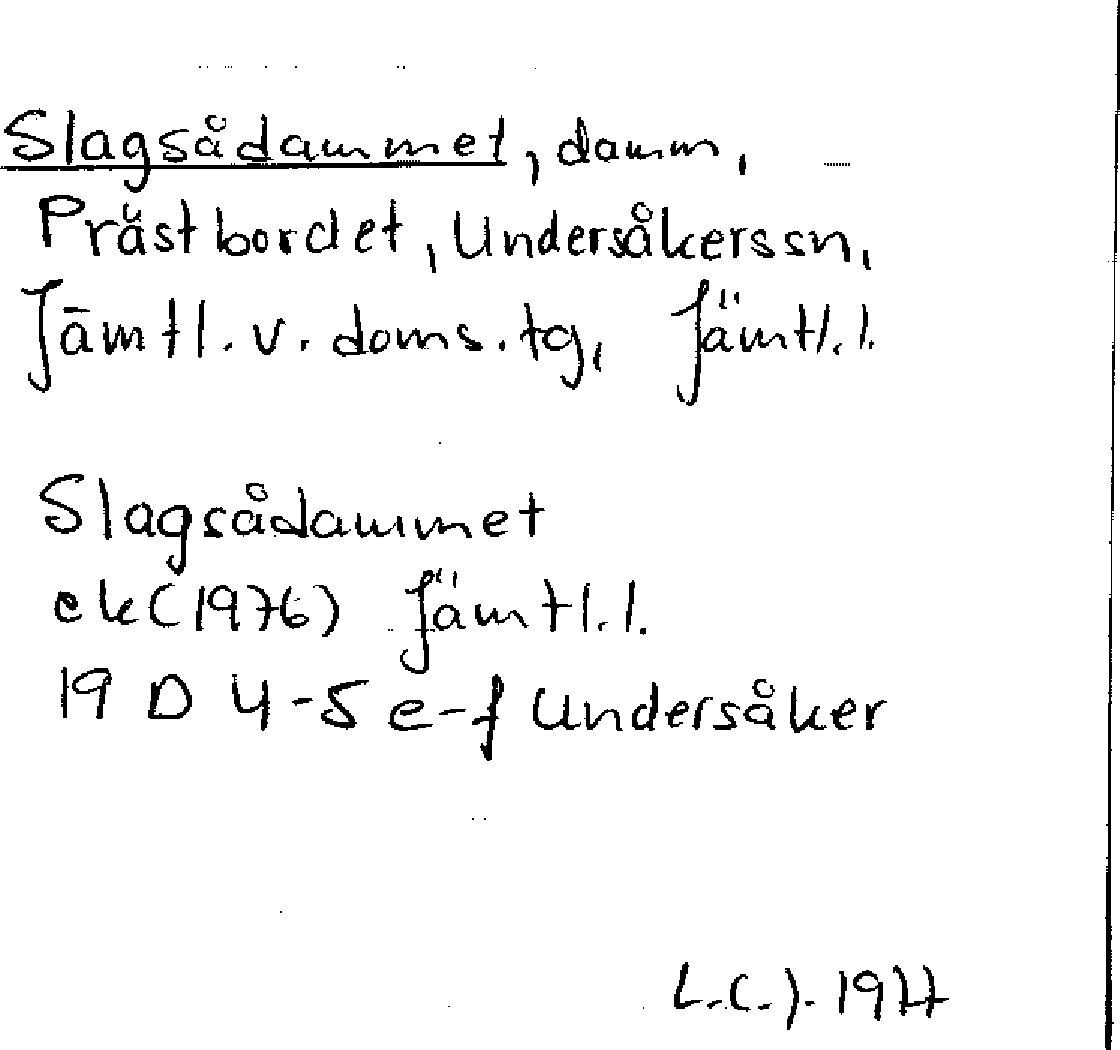 Slagsådammet, damm,
Prästbordet, Undersåkers sn,
Jämtl. v. doms. tg, Jämtl. l.
Slagsådammet
ek (1976) Jämtl. l.
19 D 4-5 e-f Undersåker
L.C.J. 1977